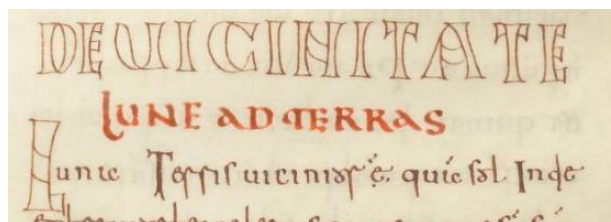 DE VICINITATE
LUNE AD TERRAS
Luna Terris uicinior ÷. quā sol. Inde